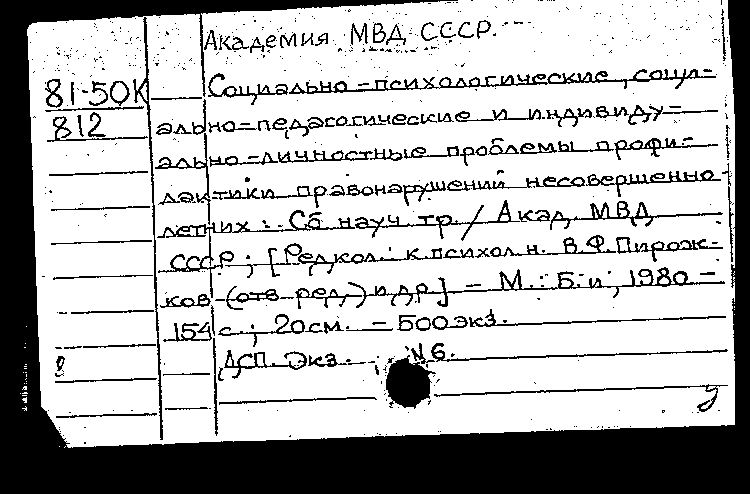 Академия МВД СССР.
81-50К Социально-психологические, соци-
812 ально-педагогические и индивиду-
ально-личностные проблемы профи-
лактики правонарушений несовершенно-
летних: Сб науч. тр. / Акад. МВД
СССР; [Редкол.: к. психол. н. В.Ф. Пирож-
ков (отв. ред.) и др.] - М.: Б. и., 1980 -
154 с.; 20 см. - 500 экз.
ДСП. Экз. N 6.